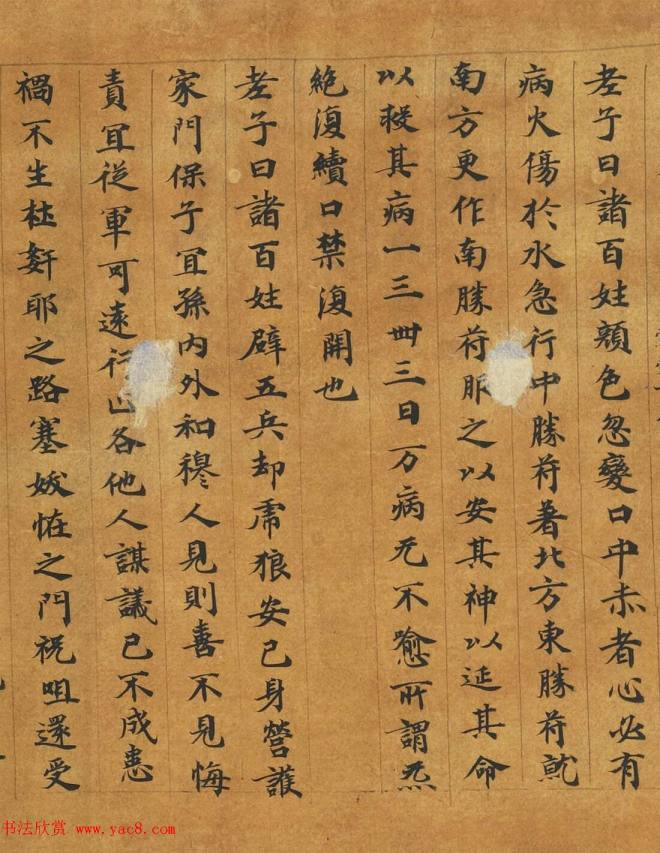 老子曰諸百姓顏色忽變口中赤者心必有
病火傷於水急行中勝符著北方東勝符就
南方更作南勝符服之以安其神以延其命
以救其病一三卌三日万病无不愈所謂炁
絕復續口禁復開也
老子曰諸百姓辟五兵却虎狼安己身營護
家門保子冝孫內外和穆人見則喜不見悔
責冝從軍可遠行 各他人謀議已不成恚
禍不生 姧耶之路塞妖恠之門祝咀還受
书法欣赏 www.yac8.com